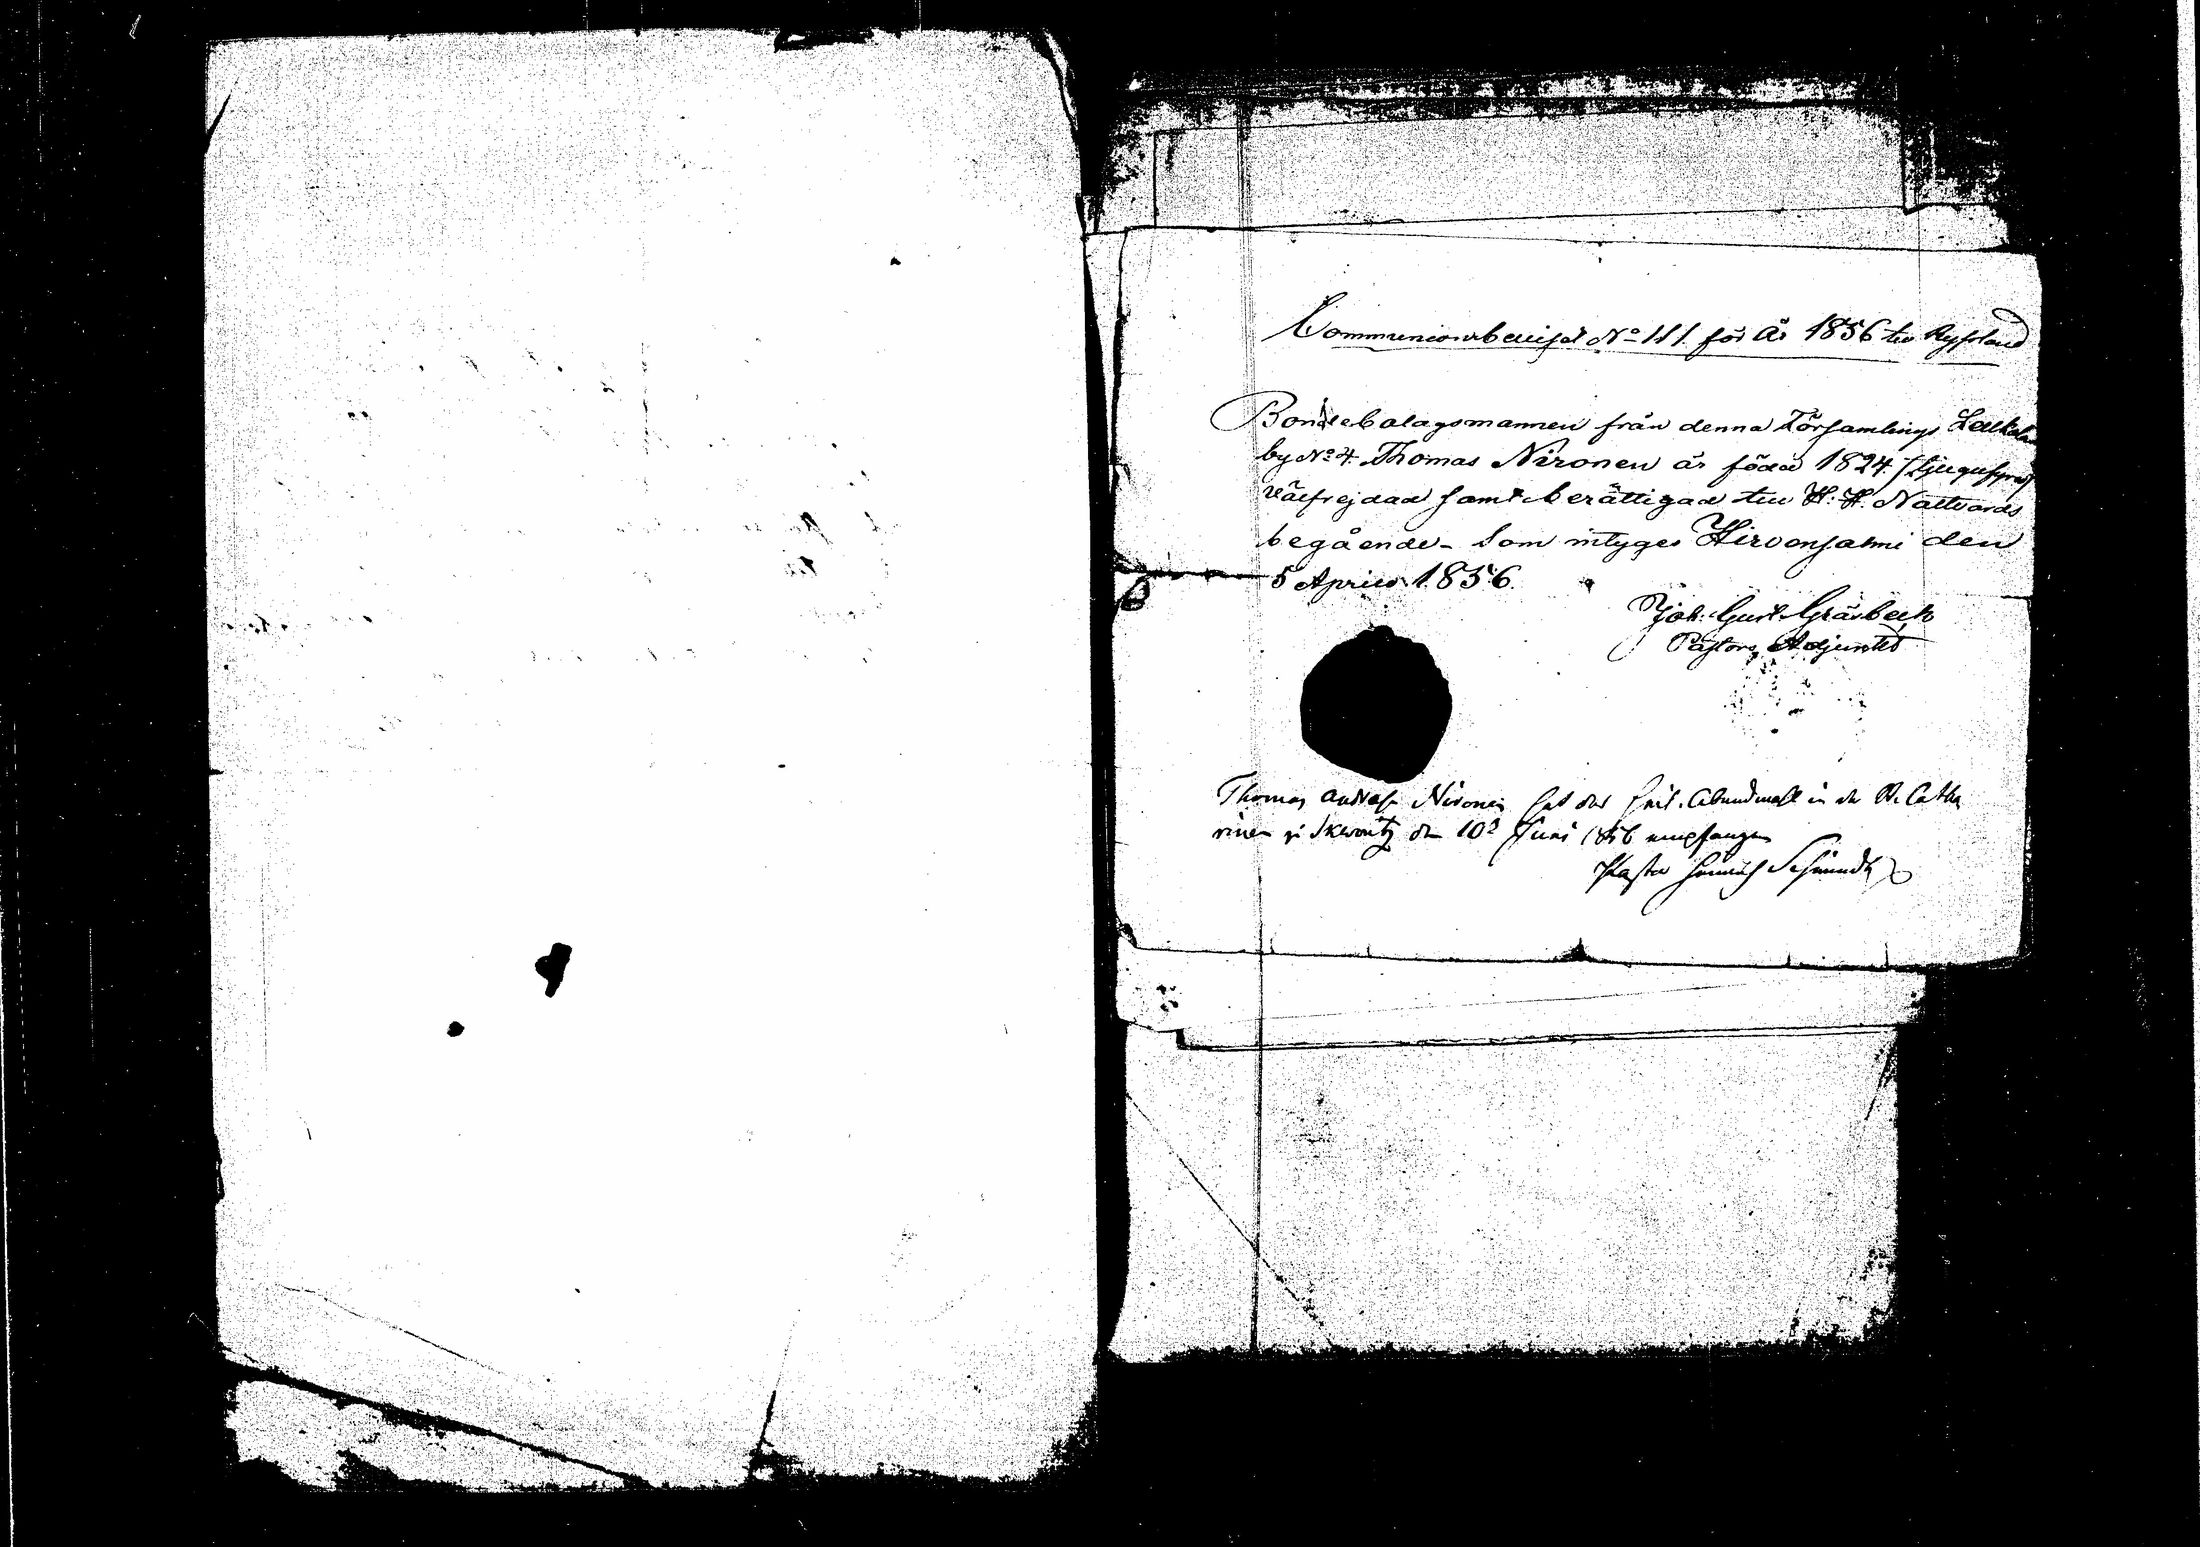 Communionsbeviset No 111. för År 1856 till Ryssland
Bondebolagsmannen från denna Församlings
by No 4. Thomas Nironen är född 1824.
välfrejdad samt berättigad till H. H. Nattvards
begående - Som intygas Hirvensalmi den
5 Aprill 1856.
Joh: Gust. Gråsbeck
Pastors Adjunkt
Thomas Nironen hat das heil. Abendmahl in der St. Catha
rinen zu den 10 Juni 1856 empfangen
Pastor Heinrich Schmidt